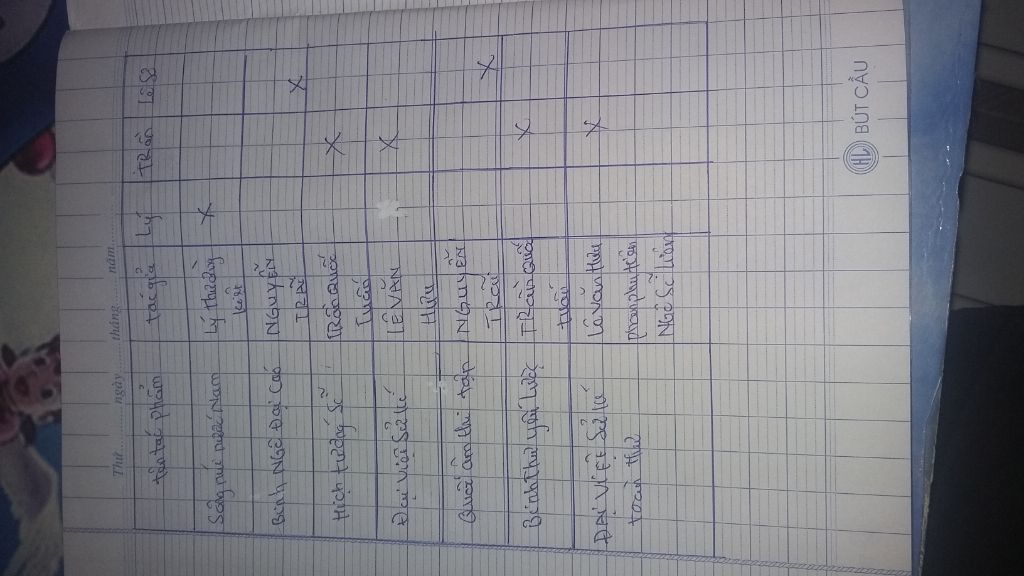 Thứ ngày tháng năm
tên tác phẩm tác giả Lý Trần Lê Sơ
Sông núi nước Nam Lý thường X
kiệt
Bình Ngô Đại Cáo NGUYỄN X
TRÃI
Hịch tướng sĩ Trần Quốc X
Tuấn
Đại Việt Sử kí LÊ VĂN X
Hưu
Quốc âm thi tập NGUYỄN X
TRÃI
Binh thư yếu lược TRẦN Quốc X
tuấn
ĐẠI VIỆT Sử kí Lê Văn Hưu X
toàn thư Phan phu tiên
Ngô Sĩ Liên
HL BÚT CẦU